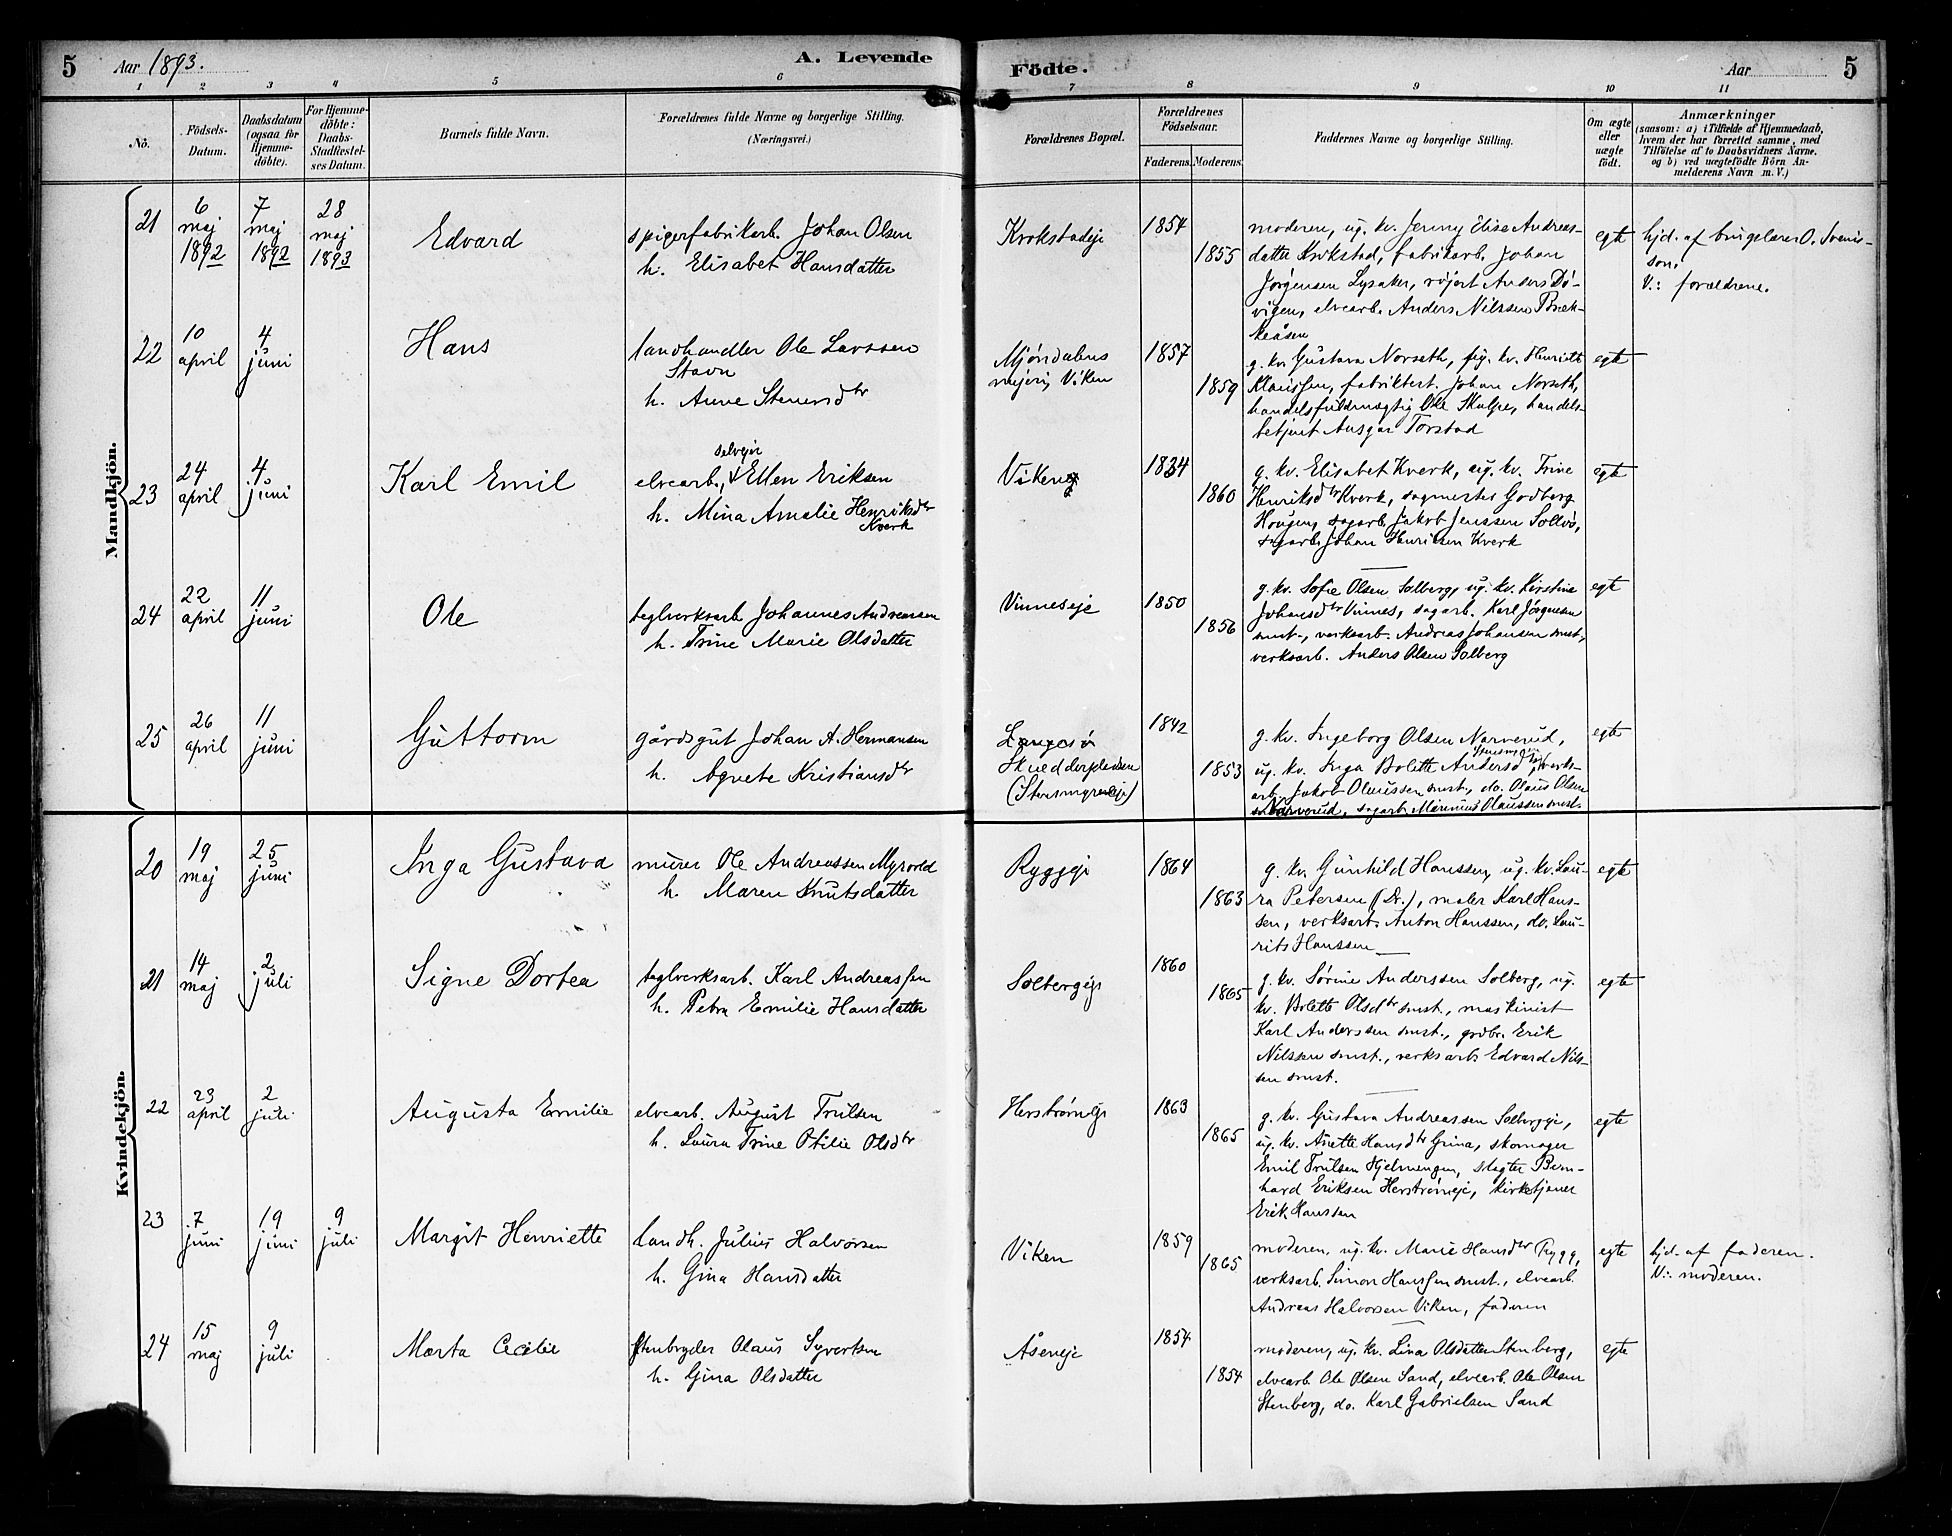 5 Aar 1893. A. Levende
Födte. Aar 5
1 2 3 4 5 6 7 8 9 10 11
No.
Födsels-
Datum.
Daabsdatum
(ogsaa for
Hjemme-
döbte).
For Hjemme-
döbte:
Daabs-
Stadfæstel-
ses Datum.
Barnets fulde Navn.
Forældrenes fulde Navne og borgerlige Stilling.
(Næringsvei.)
Forældrenes Bopæl.
Forældrenes
Födselsaar.
Faderens. Moderens.
Faddernes Navne og borgerlige Stilling.
Om ægte
eller
uægte
födt.
Anmærkninger
(saasom: a) i Tilfælde af Hjemmedaab,
hvem der har forrettet samme, med
Tilföielse af to Daabsvidners Navne.
og b) ved uægtefödte Börn An-
melderens Navn m. V.)
Mandkjön.
21
6
maj
1892
7
maj
1892
28
maj
1893
Edvard
spigerfabrikarb. Johan Olsen
h. Elisabet Hansdatter
Krokstadeje
1854
1855
moderen, ug. kv. Jenny Elise Andreas-
datter Krokstad, fabrikarb. Johan
Jørgensen Lysaker, røjert Anders Dø-
vigen, elvearb. Anders Nilssen Bræk-
keåsen
egte
hjd. af brugslærer O. Svenis-
son.
V.: forældrene.
22
10
april
4
juni
Hans
landhandler Ole Larssen
Stavn
h. Anne Stenersdtr
Mjøndalens
mejeri, Viken
1857
1859
g. kv. Gustava Norseth, pig. kv. Henriette
Klaussen, fabriktert. Johan Norseth,
handelsfuldmægtig Ole Skalpe, handels-
betjent Ansgar Torstad
egte
23
24
april
4
juni
Karl Emil
selvejer
elvearb., Ellen Eriksen
h. Mina Amalie Henriksdtr
Kverk
Vikeng
1834
1860
g. kv. Elisabet Kverk, ug. kv. Trine
Henriksdtr Kverk, sagmester Godberg
Hougen, sagarb. Jakob Jenssen Solvø,
sagarb. Johan Henriksen Kverk
egte
24
22
april
11
juni
Ole
teglverksarb. Johannes Andreassen
h. Trine Marie Olsdatter
Vinneseje
1850
1856
g. kv. Sofie Olsen Solberg, ug. kv. Kirstine
Johansdtr Vinnes, sagarb. Karl Jørgensen
smst., verksarb. Andreas Johansen smst.,
verksarb. Anders Olsen Solberg
egte
25
26
april
11
juni
Guttorm
gårdsgut Johan A. Hermansen
h. Agnete Kristiansdtr
Langesø
Skuedderpladsen
(Stensmyreneje)
1842
1853
g. kv. Ingeborg Olsen Narverud,
ug. kv. Inga Bolette Andersdtr, verks-
arb. Jakob Olaussen smst., do. Olaus Olsen
Narverud, sagarb. Marinius Olaussen smst.
egte
Kvindekjön.
20
19
maj
25
juni
Inga Gustava
murer Ole Andreassen Myrvold
h. Maren Knutsdatter
Ryggeje
1864
1863
g. kv. Gunhild Hanssen, ug. kv. Lau-
ra Petersen (Dr.), maler Karl Hans-
sen, verksarb. Anton Hanssen, do. Lau-
rits Hanssen
egte
21
14
maj
2
juli
Signe Dortea
teglverksarb. Karl Andreassen
h. Petra Emilie Hansdatter
Solbergeje
1860
1865
g. kv. Sørine Anderssen Solberg, ug.
kv. Bolette Olsdtr smst., maskinist
Karl Anderssen smst., grdbr. Erik
Nilssen smst., verksarb. Edvard Nils-
sen smst.
egte
22
23
april
2
juli
Augusta Emilie
elvearb. August Trulsen
h. Laura Trine Otilie Olsdtr
Herstrømeje
1863
1865
g. kv. Gustava Andreassen Solbergeje,
ug. kv. Anette Hansdtr Grina, skomager
Emil Trulsen Hjelmengen, slagter Bern-
hard Eriksen Herstrømeje, kirketjener
Erik Hanssen
egte
23
7
juni
19
juni
9
juli
Margit Henriette
landh. Julius Halvorsen
h. Gina Hansdatter
Viken
1859
1865
moderen, ug. kv. Marie Hansdtr Rygg,
verksarb. Simon Hanssen smst., elvearb.
Andreas Halvorsen Viken, faderen
egte
hjd. af faderen.
V.: moderen.
24
15
maj
9
juli
Marta Cecilie
Stenbryder Olaus Syvertsen
h. Gina Olsdatter
Åseneje
1854
1854
moderen, ug. kv. Lina Olsdatter Stenberg,
elvearb. Ole Olsen Sand, elvearb. Ole Olsen
Stenberg, do. Karl Gabrielsen Sand
egte